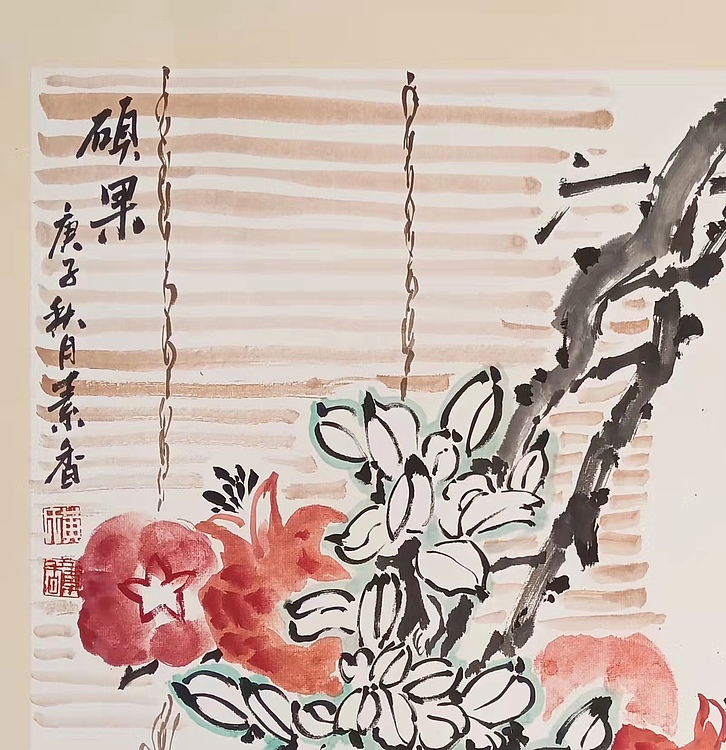 碩果
庚子秋月素香